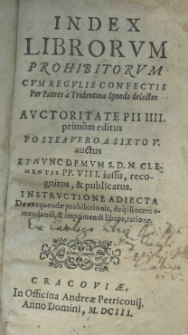 INDEX
LIBRORVM
PROHIBITORVM
CVM REGVLIS CONFECTIS
Per Patres à Tridentina Synodo delectos
AVCTORITATE PII IIII.
primùm editus
POSTEA VERO A SIXTO V.
auctus
ET NVNC DEMVM S. D. N. CLE-
MENTIS PP. VIII. iussu, reco-
gnitus, & publicatus.
INSTRVCTIONE ADIECTA
De exequendæ prohibitionis, deq́; sincere e-
mendandi, & imprimendi libros, ratione.
CRACOVIÆ,
In Officina Andreæ Petricouij,
Anno Domini, M. DCIII.